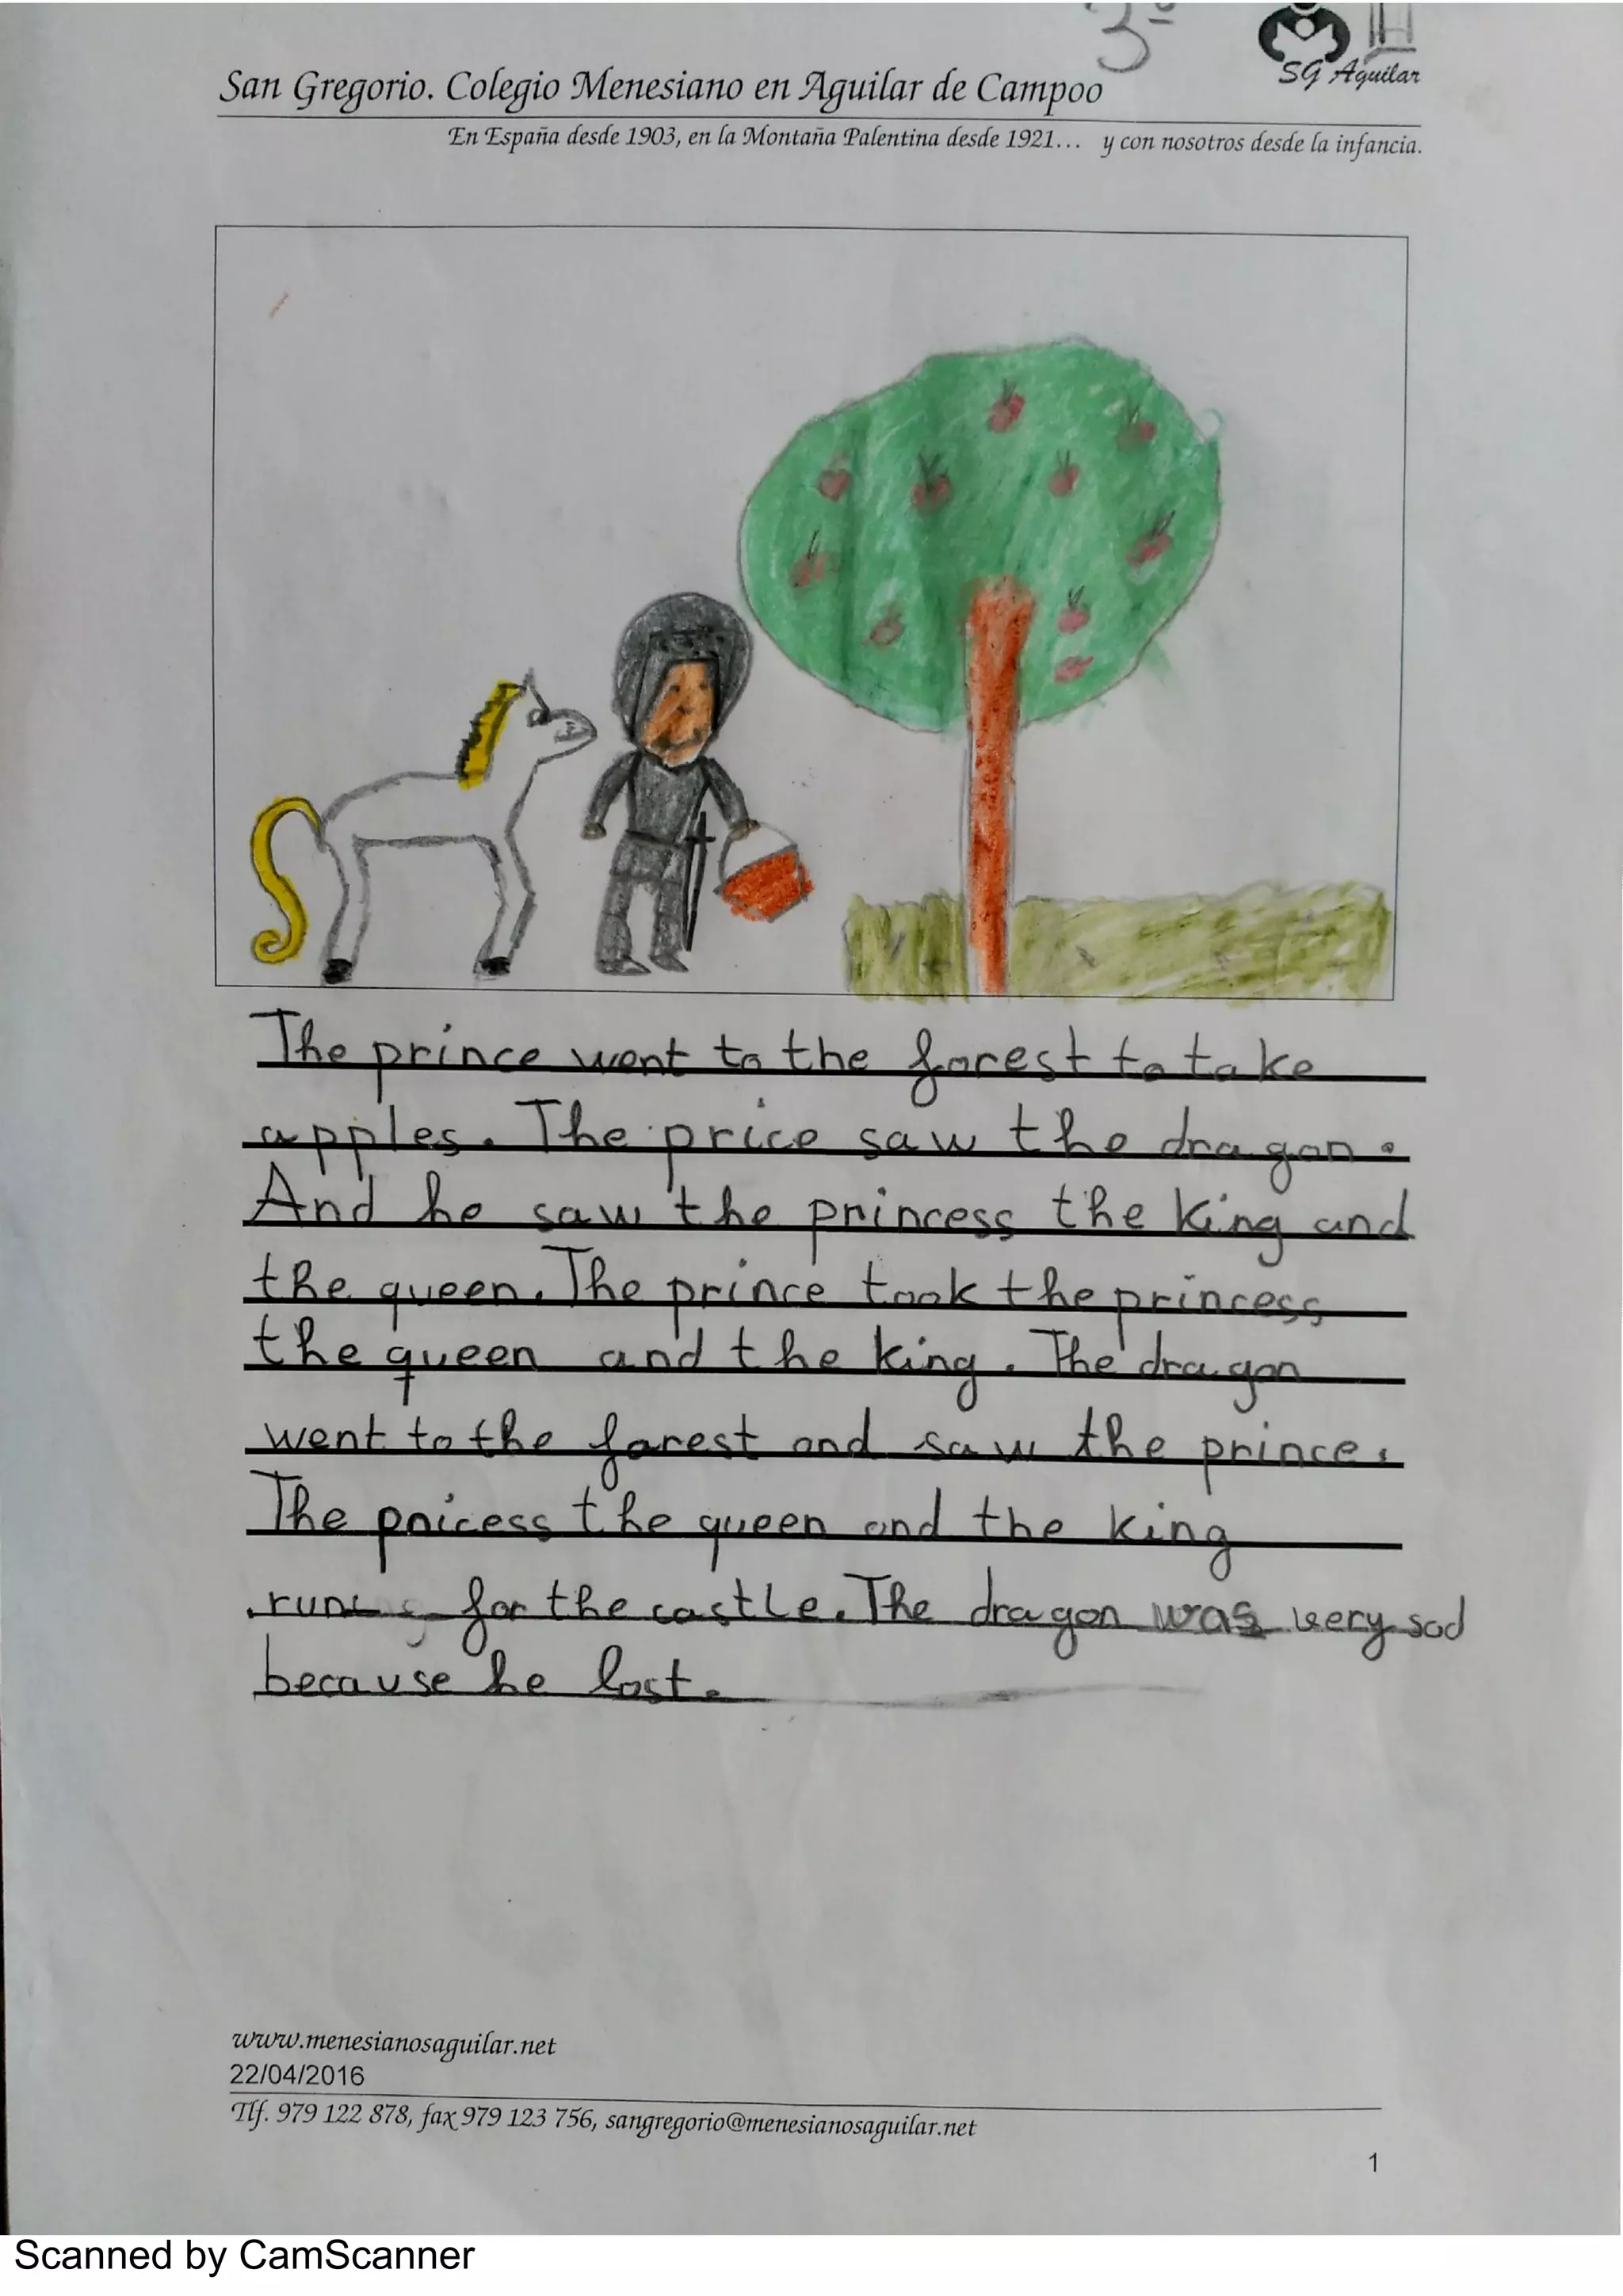 3º
SG Aguilar
San Gregorio. Colegio Menesiano en Aguilar de Campoo
En España desde 1903, en la Montaña Palentina desde 1921... y con nosotros desde la infancia.
The prince went to the forest to take
apples. The price saw the dragon.
And he saw the princess the king and
the queen. The prince took the princess
the queen and the king. The dragon
went to the forest and saw the prince.
The pricess the queen and the king
run for the castle. The dragon was very sad
because he lost.
www.menesianosaguilar.net
22/04/2016
Tlf. 979 122 878, fax 979 123 756, sangregorio@menesianosaguilar.net
1
Scanned by CamScanner